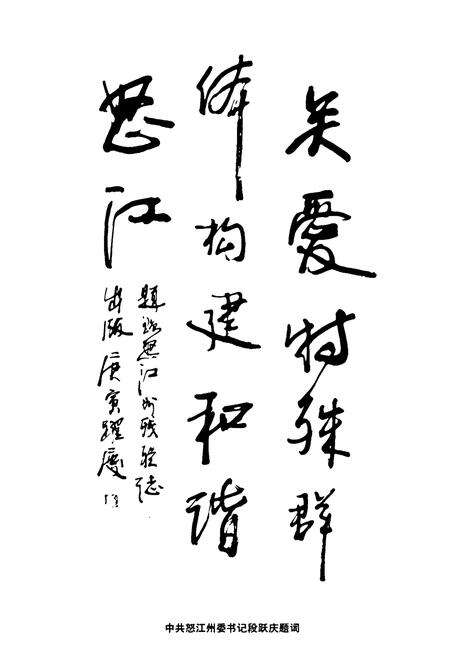 关爱特殊群
体构建和谐
怒江
题赠怒江州残联志
出版 庚寅跃庆
中共怒江州委书记段跃庆题词